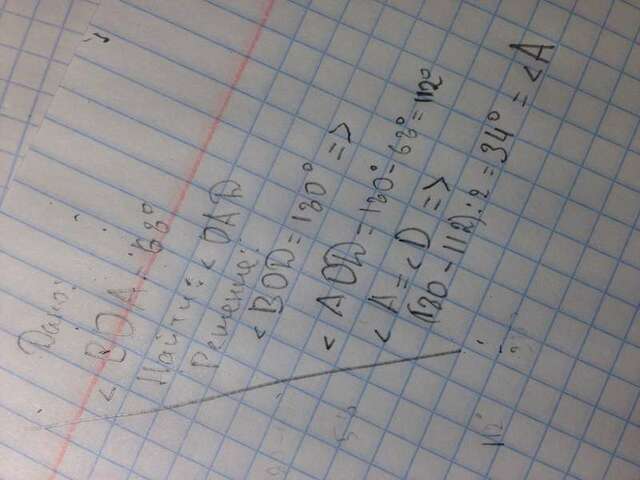 Дано:
< BOA = 68°
Найти: < OAD
Решение:
< BOD = 180° =>
< AOD = 180° - 68° = 112°
< A = < D =>
(180 - 112) : 2 = 34° = < A